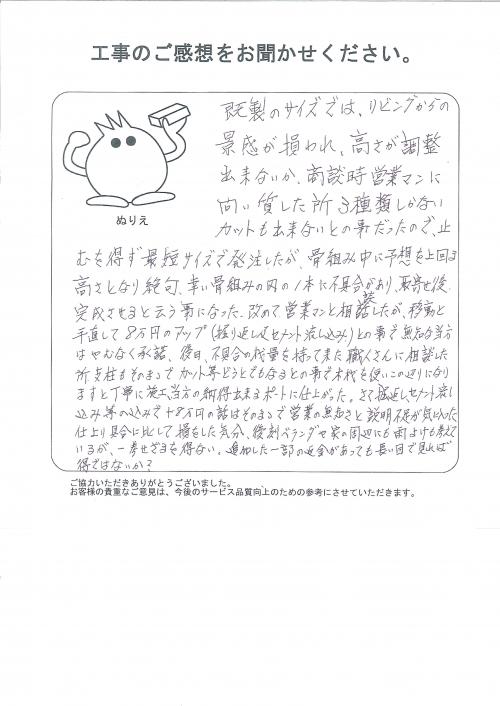 工事のご感想をお聞かせください。
既製のサイズでは、リビングからの
景感が損われ、高さが調整
出来ないか、商談時営業マンに
問い質した所3種類しかない
カットも出来ないとの事だったので、止
ぬりえ
むを得ず最短サイズで発注したが、骨組み中に予想を上回る
高さとなり絶句、幸い骨組みの内の1本に不具合があり、取寄せ後
完成させると云う事になった。改めて営業マンと相談したが、移動と
手直しで8万円のアップ(掘り返しセメント流し込み)との事で無知な当方
はやむなく承諾、後日、不具合の代量を持って来た職人さんに相談した
所支柱もそのままでカット等どうとでもなるとの事で木代を使いこの辺りになり
ますと丁寧に施工当方の納得出来るポートに仕上がった。さて掘返しセメント流し
込み等の込みで+8万円の話はそのままで営業の無知さと説明不足が気に入った
仕上り具合に比して損をした気分、後刻ベランダや家の周辺にも雨よけも考えて
いるが、一考せざるを得ない。追加した一部の返金があっても長い目で見れば
得ではないか?
ご協力いただきありがとうございました。
お客様の貴重なご意見は、今後のサービス品質向上のための参考にさせていただきます。